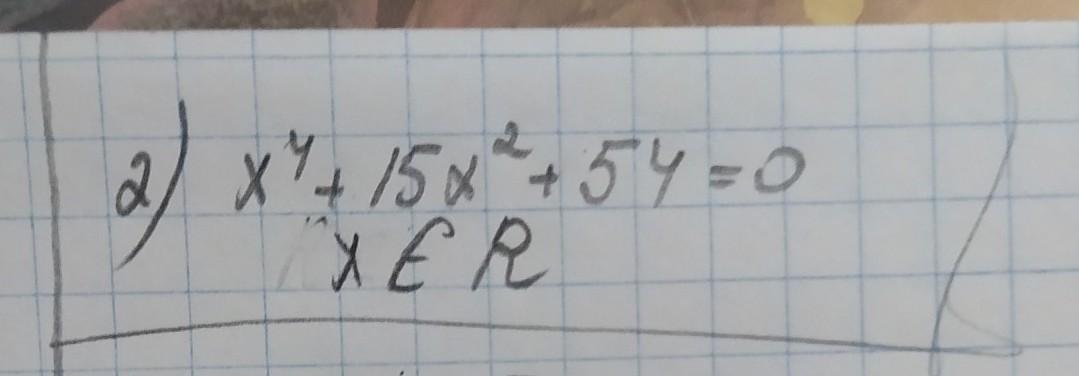 2) x⁴ + 15x² + 54 = 0
x ∈ R